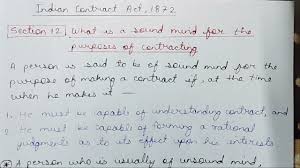 Indian Contract Act, 1872.
Section 12 What is a sound mind for the
purposes of contracting
A person is said to be of sound mind for the
purpose of making a contract if, at the time
when he makes it —
1. He must be capable of understanding contract, and
2. He must be capable of forming a rational
judgments as to its effect upon his interests
A person who is usually of unsound mind,